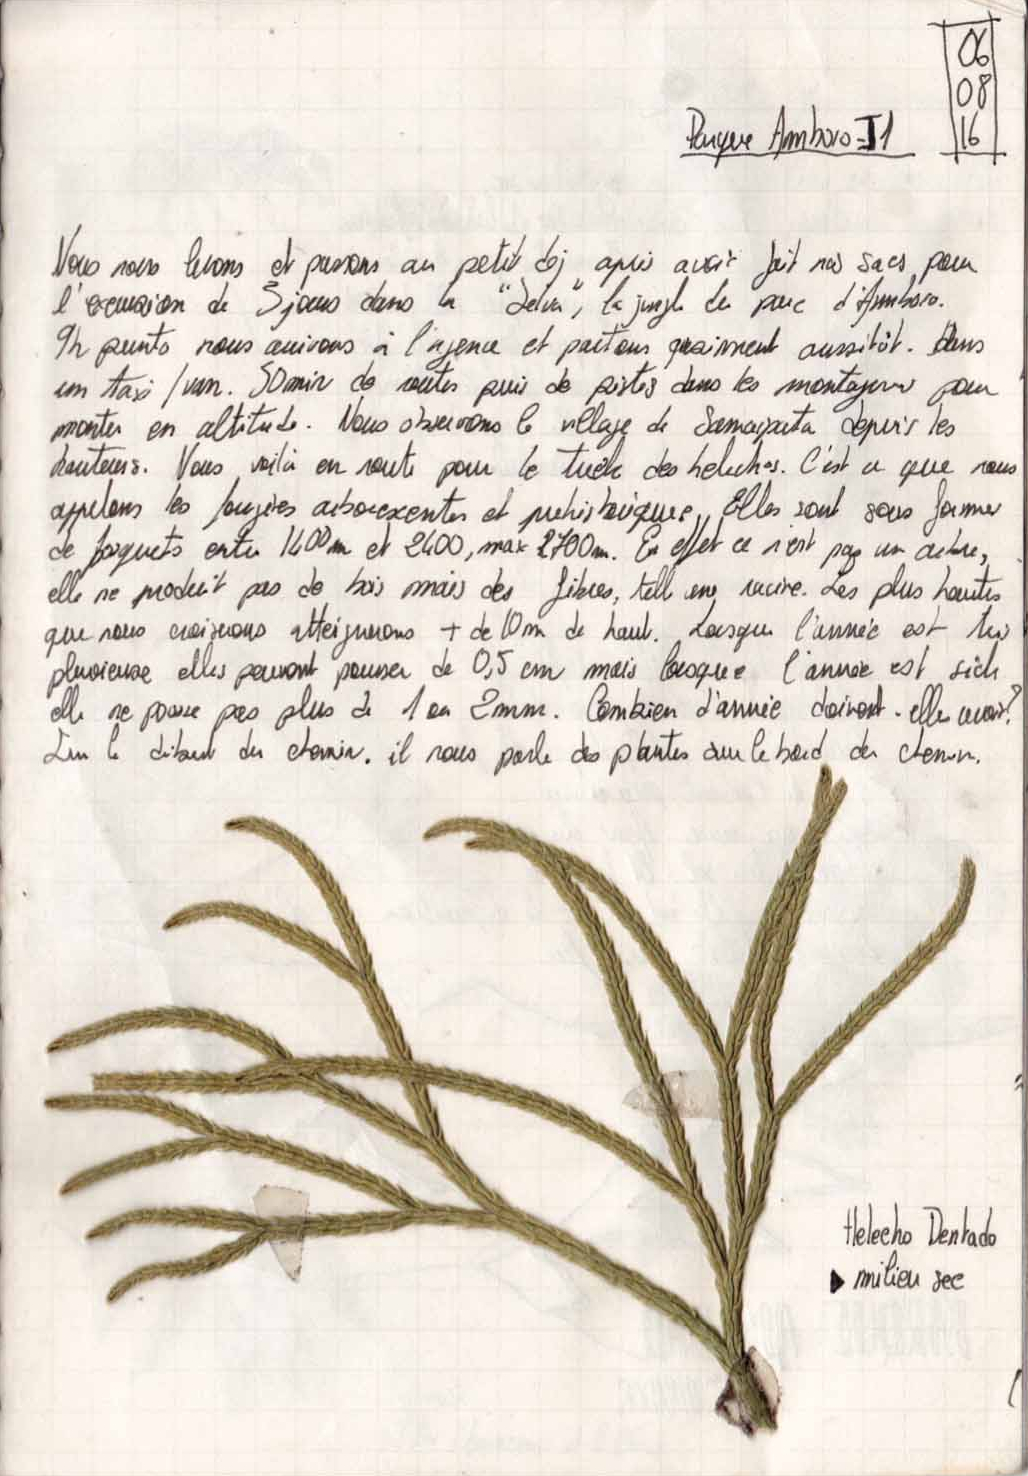 06
08
16
Parque Amboro-J1
Nous nous levons et passons au petit dej après avoir fait nos sacs pour
l'excursion de 3 jours dans la "Selva", la jungle du parc d'Amboro.
9h punto nous arrivons à l'agence et partons quasiment aussitôt. Dans
un taxi/van. 50min de routes puis de pistes dans les montagnes pour
monter en altitude. Nous observons le village de Samaipata depuis les
hauteurs. Nous voilà en route pour le des helechos. C'est ce que nous
appelons les fougères arborescentes et préhistoriques. Elles sont sous formes
de forêts entre 1400m et 2400, max 2700m. En effet ce n'est pas un arbre,
elle ne produit pas de bois mais des fibres, telle une racine. Les plus hautes
que nous croiserons atteignerons + de 10m de haut. Lorsque l'année est très
pluvieuse elles peuvent pousser de 0,5 cm mais lorsque l'année est sèche
elle ne pousse pas plus de 1 ou 2mm. Combien d'année doivent-elles avoir?
Sur le début du chemin. il nous parle des plantes sur le bord du chemin.
Helecho Dentado
▶ milieu sec